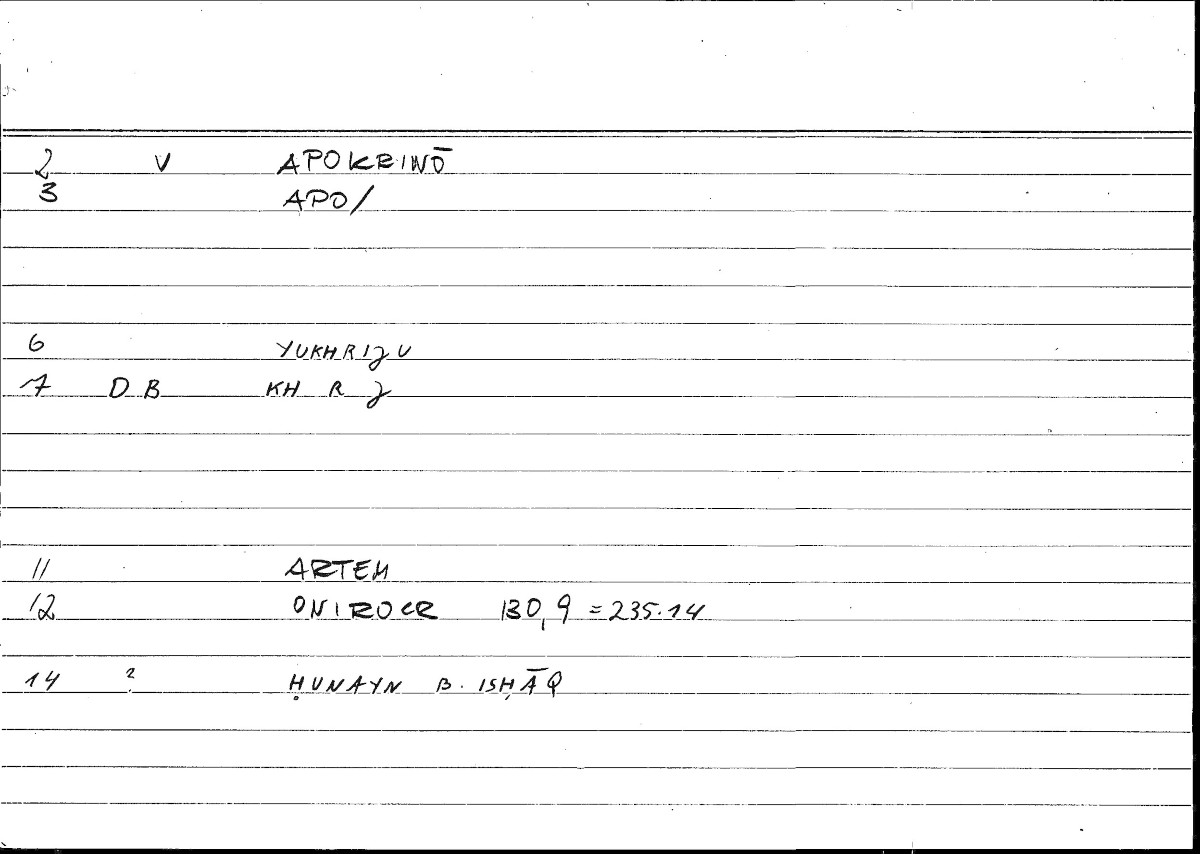 2 V APOKRINŌ
3 APO/
6 YUKHRIJU
7 DB KH R J
11 ARTEM
12 ONIROCR 130,9 = 235.14
14 ? ḤUNAYN B. ISḤĀQ